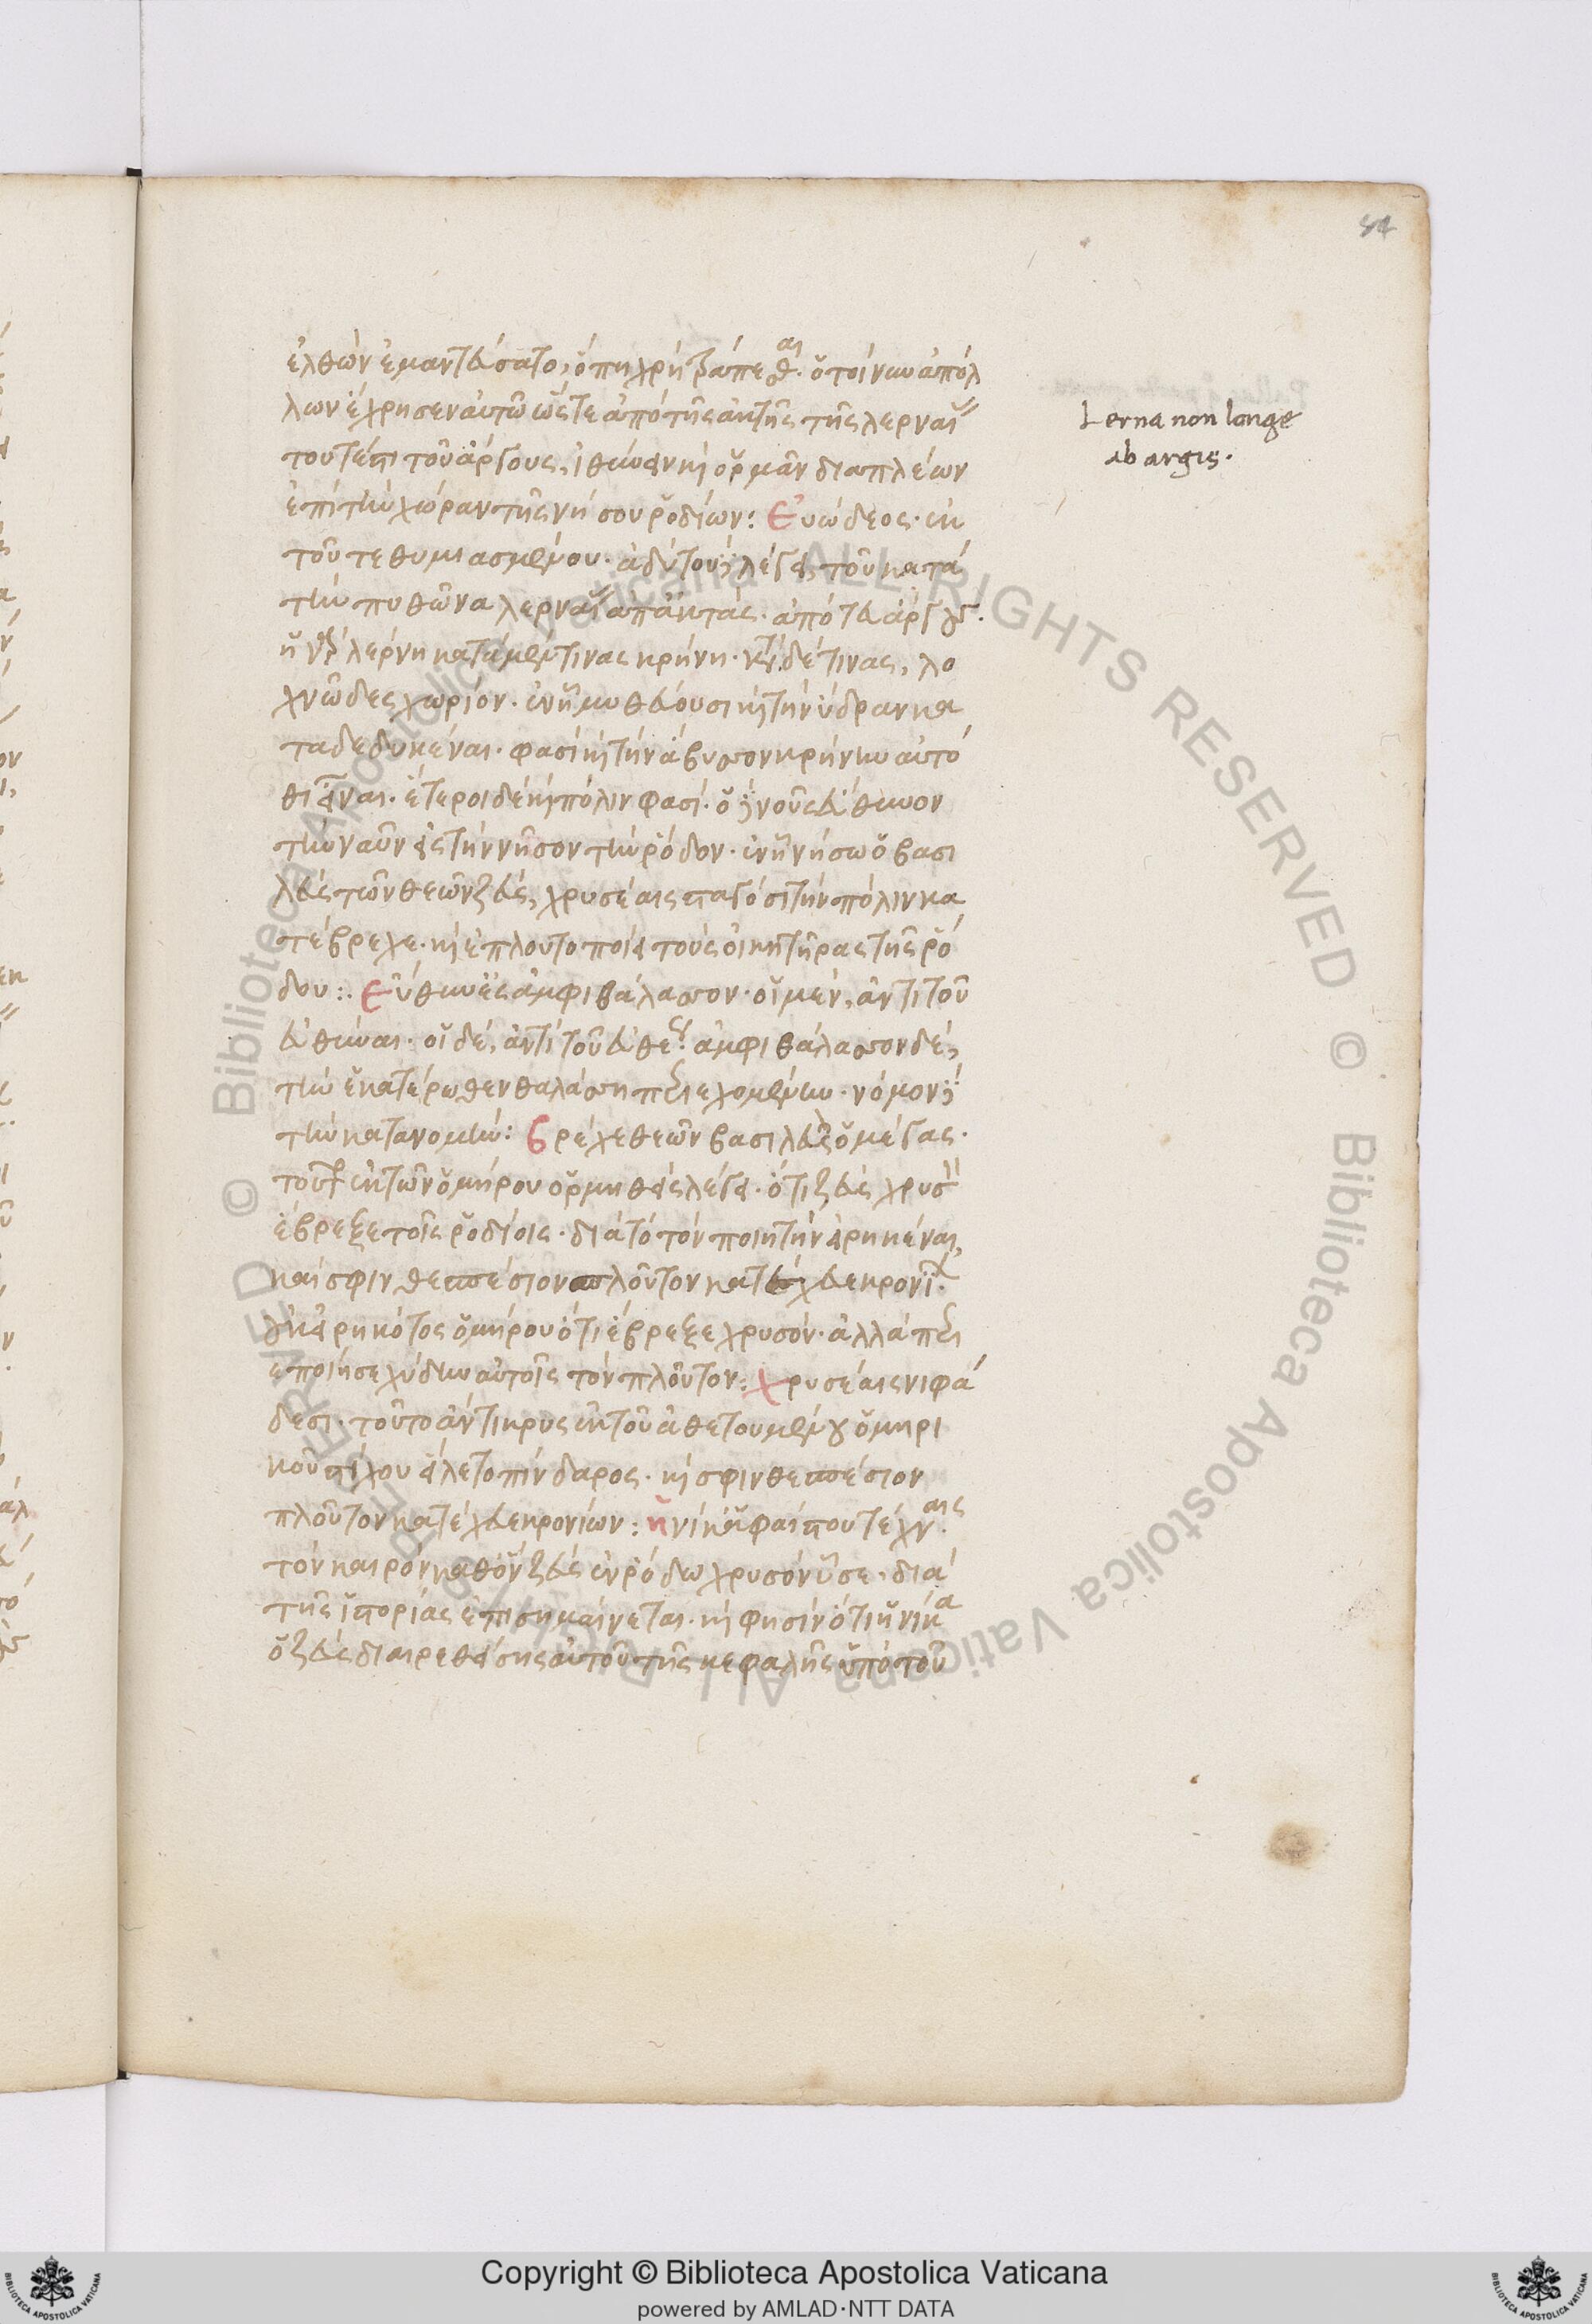 54
ἐλθὼν ἐμαντεύσατο, ὅπη χρὴ τραπέσθαι. ὁ τοίνυν ἀπόλ
λων ἔχρησεν αὐτῶ ὥστε ἀπὸ τῆς ἀκτῆς τῆς λερναί
τουτέστι τοῦ ἄργους, ἰθύνειν καὶ ὁρμᾶν διαπλέων
ἐπὶ τὴν χώραν τῆς νήσου ῥοδίων: Εὐώδεος. ἐκ
τοῦ τεθυμιασμένου. ἀδύτου δὲ λέγει, τοῦ κατὰ
τὴν πυθῶνα λερναίας ἀπ' ἀκτᾶς. ἀπὸ τοῦ ἄργους.
ἡ γὰρ λέρνη κατὰ μέν τινας κρήνη. κατὰ δέ τινας, λο
χνῶδες χωρίον. ἐν ἧ μυθεύουσι καὶ τὴν ὕδραν κα
ταδεδυκέναι. φασὶ καὶ τὴν ἄβυσσον κρήνην αὐτό
θι εἶναι. ἕτεροι δὲ καὶ πόλιν φασί. ὁ δὲ νοῦς εὔθυνον
τὴν ναῦν εἰς τὴν νῆσον τὴν ῥόδον. ἐν ἧ νήσω ὁ βασι
λεὺς τῶν θεῶν ζεὺς, χρυσέαις σταγόσι τὴν πόλιν κα
τέβρεχε. καὶ ἐπλουτοποίει τοὺς οἰκητῆρας τῆς ῥό
δου:. Εὔθυν' ἐς ἀμφιθάλασσον. οἱ μὲν, ἀντὶ τοῦ
εὐθύναι. οἱ δὲ, ἀντὶ τοῦ εὐθέως. ἀμφιθάλασσον δὲ,
τὴν ἑκατέρωθεν θαλάσση περιεχομένην. νόμον δὲ
τὴν κατανομήν: βρέχε θεῶν βασιλεὺς ὁ μέγας.
τοῦτο ἐκ τῶν ὁμήρου ὁρμηθεὶς λέγει. ὅτι ζεὺς χρυσὸν
ἔβρεξε τοῖς ῥοδίοις. διὰ τὸ τὸν ποιητὴν εἰρηκέναι,
καί σφιν θεσπέσιον πλοῦτον κατέχευε κρονίων.
οὐκ εἰρηκότος ὁμήρου ὅτι ἔβρεξε χρυσόν. ἀλλὰ περι
εποίησε χύδην αὐτοῖς τὸν πλοῦτον: Χρυσέαις νιφά
δεσι. τοῦτο ἄντικρυς ἐκ τοῦ ἀθετουμένου ὁμηρι
κοῦ στίχου εἵλετο πίνδαρος. καί σφιν θεσπέσιον
πλοῦτον κατέχευε κρονίων: ἡνίκ' ἁφαίστου τέχναις.
τὸν καιρὸν καθ' ὃν ζεὺς ἐν ῥόδω χρυσὸν ὗσε. διὰ
τῆς ἱστορίας ἐπισημαίνεται. καὶ φησὶν ὅτι ἡνίκα
ὁ ζεὺς διαιρεθείσης αὐτοῦ τῆς κεφαλῆς ὑπὸ τοῦ
Lerna non longe
ab argis.
© Biblioteca Apostolica Vaticana ALL RIGHTS RESERVED © Biblioteca Apostolica Vaticana ALL RIGHTS RESERVED
Copyright © Biblioteca Apostolica Vaticana
powered by AMLAD·NTT DATA
BIBLIOTECA APOSTOLICA VATICANA
BIBLIOTECA APOSTOLICA VATICANA